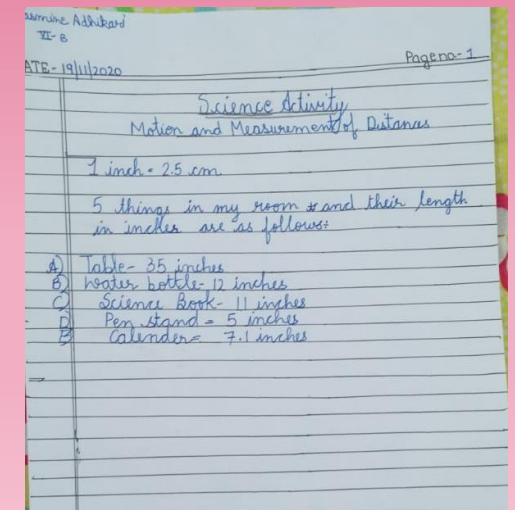 asmine Adhikari
VI-B
ATE- 19/11/2020
Page no- 1
Science Activity
Motion and Measurement of Distances
1 inch = 2.5 cm
5 things in my room and their length
in inches are as follows:
A) Table- 35 inches
B) Water bottle- 12 inches
C) Science Book- 11 inches
D) Pen stand = 5 inches
E) Calender= 7.1 inches